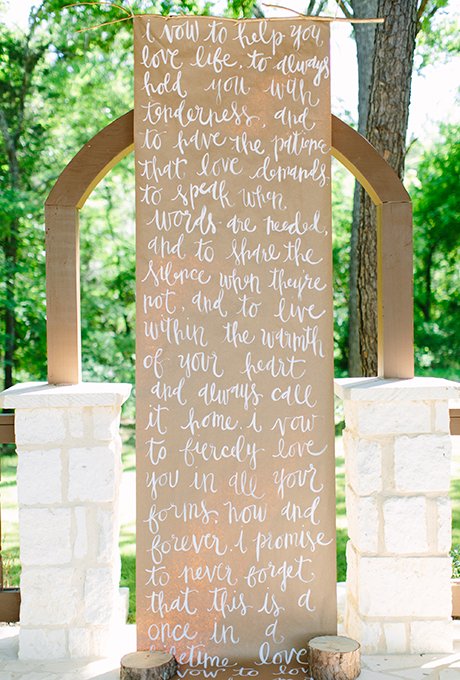 i vow to help you
love life, to always
hold you with
tenderness and
to have the patience
that love demands
to speak when
words are needed,
and to share the
silence when they're
not, and to live
within the warmth
of your heart
and always call
it home. i vow
to fiercely love
you in all your
forms, now and
forever. i promise
to never forget
that this is a
once in a
lifetime love
vow to love